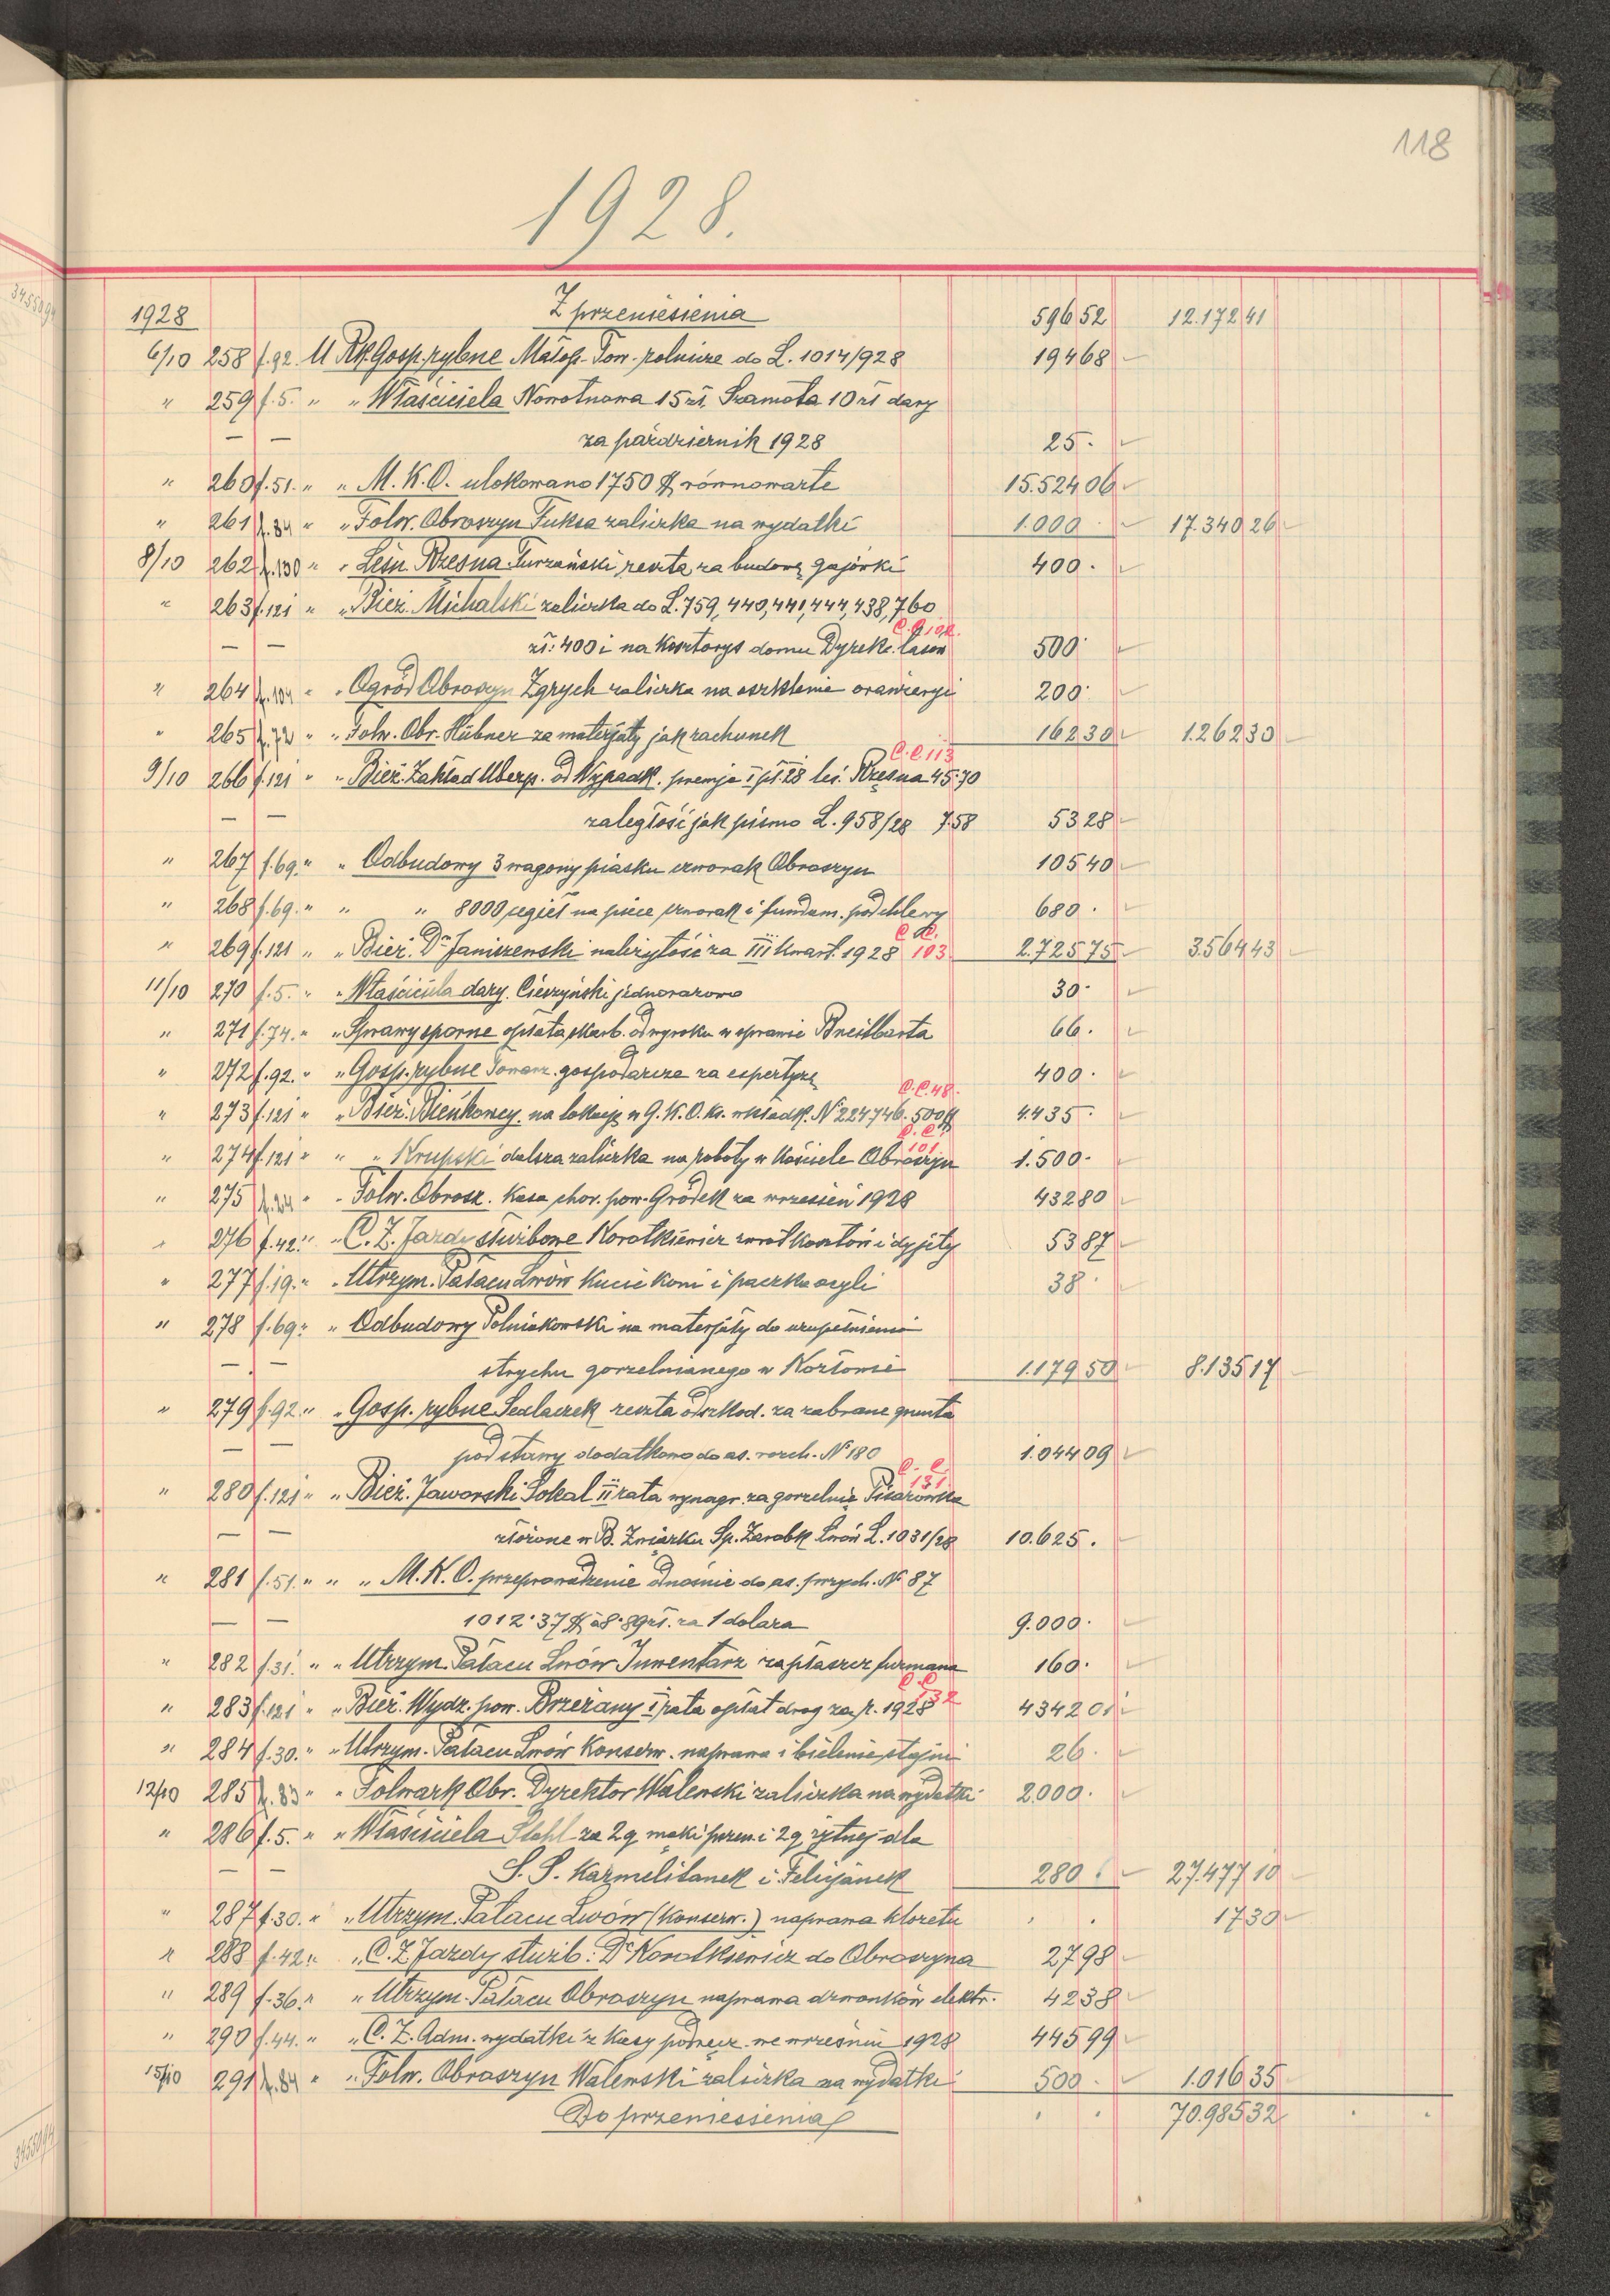 118
1928.
1928 Z przeniesienia 596 52 12.172 41
6/10 258 f.92. U Rk Gosp. rybne Małop. Tow. rolnicze do L. 1014/928 194 68
" 259 f.5. " " Właściciela Nowotnowa 15 zł. Szamota 10 zł dary
— — za październik 1928 25.
" 260 f.51. " " M.K.O. ulokowano 1750 $ równowarte 15.524 06
" 261 f.84 " " Folw. Obroszyn Fuksa zaliczka na wydatki 1.000 . 17.340 26
8/10 262 f.130 " " Leśn. Rzesna Turzański reszta za budowę gajówki 400.
" 263 f.121 " " Bież. Michalski zaliczka do L. 759, 440, 441, 444, 438, 760
C.C. 102.
— — zł: 400 i na kosztorys domu Dyrekc. lasów 500.
" 264 f.104 " " Ogród Obroszyn Zgrych zaliczka na oszklenie oranżeryi 200.
" 265 f.72 " " Folw. Obr. Hübner za materjały jak rachunek 162 30 1.262 30
C.C 113
9/10 266 f.121 " " Bież. Zakład Ubezp. od Wypadk. premja I pł. 28 leś. Rzęsna 45.70
— — zaległość jak pismo L. 958/28 7.58 53 28
" 267 f.69. " " Odbudowy 3 wagony piasku czworak Obroszyn 105 40
" 268 f.69. " " " 8000 cegieł na piece czworak i fundam. pod chlewy 680.
C.C.
" 269 f.121 " " Bież. Dr Janiszewski należytość za III Kwart. 1928 103 2.725 75 3.564 43
11/10 270 f.5. " " Właściciela dary. Cieszyński jednorazowo 30.
" 271 f.74. " " Sprawy sporne opłata skarb. od wyroku w sprawie Breitbarta 66.
" 272 f.92. " " Gosp. rybne Towarz. gospodarcze za espertyzę 400.
C.C. 48.
" 273 f.121 " " Bież. Bieńkowcy. na lokację w G.K.O. ks. wkładk. № 224746. 500 $ 4.435.
C.C. 101
" 274 f.121 " " " Krupski dalsza zaliczka na roboty w kościele Obroszyn 1.500.
" 275 f.84 " " Folw. Obrosz. Kasa chor. pow. Gródek za wrzesień 1928 432 80
" 276 f.42. " " C.Z. Jazdy służbowe Korotkiewicz zwrot kosztów i dyjety 53 87
" 277 f.19. " " Utrzym. Pałacu Lwów Kucie koni i paczka ocyli 38.
" 278 f.69. " " Odbudowy Polniakowski na materjały do uzupełnienia
— — strychu gorzelnianego w Kozłowie 1.179 50 8.135 17
" 279 f.92. " " Gosp. rybne Sedlaczek reszta odszkod. za zabrane grunta
— — pod stawy dodatkowo do as. rozch. № 180 1.044 09
C.C. 131
" 280 f.121 " " Bież. Jaworski Sokal II rata wynagr. za gorzelnię Pisarówka
— — złożone w B. Związku Sp. Zarobk. Lwów L. 1031/28 10.625.
" 281 f.51. " " " M.K.O. przeprowadzenie odnośnie do as. przych. № 87
— — 1012.37 $ à 8.89 zł. za 1 dolara 9.000.
" 282 f.31. " " Utrzym. Pałacu Lwów Inwentarz za płaszcz furmana 160.
C.C 132
" 283 f.121 " " Bież. Wydz. pow. Brzeżany I rata opłat drog za r. 1928 4342 01
" 284 f.30. " " Utrzym. Pałacu Lwów Konserw. naprawa i bielenie stajni 26.
12/10 285 f.83 " " Folwark Obr. Dyrektor Walewski zaliczka na wydatki 2.000.
" 286 f.5. " " Właściciela Stahl za 2 q mąki pszen. i 2 q żytnej dla
— — S.S. Karmelitanek i Felicjanek 280 . 27.477 10
" 287 f.30. " " Utrzym. Pałacu Lwów (Konserw.) naprawa klozetu . . 17 30
" 288 f.42. " " C.Z. Jazdy służb: Dr Korotkiewicz do Obroszyna 27 98
" 289 f.36. " " Utrzym. Pałacu Obroszyn naprawa dzwonków elektr. 42 38
" 290 f.44. " " C.Z. Adm. wydatki z Kasy podręcz. we wrześniu 1928 445 99
15/10 291 f.84 " " Folw. Obroszyn Walewski zaliczka na wydatki 500 . 1.016 35
Do przeniesienia . . 70.985 32 . .